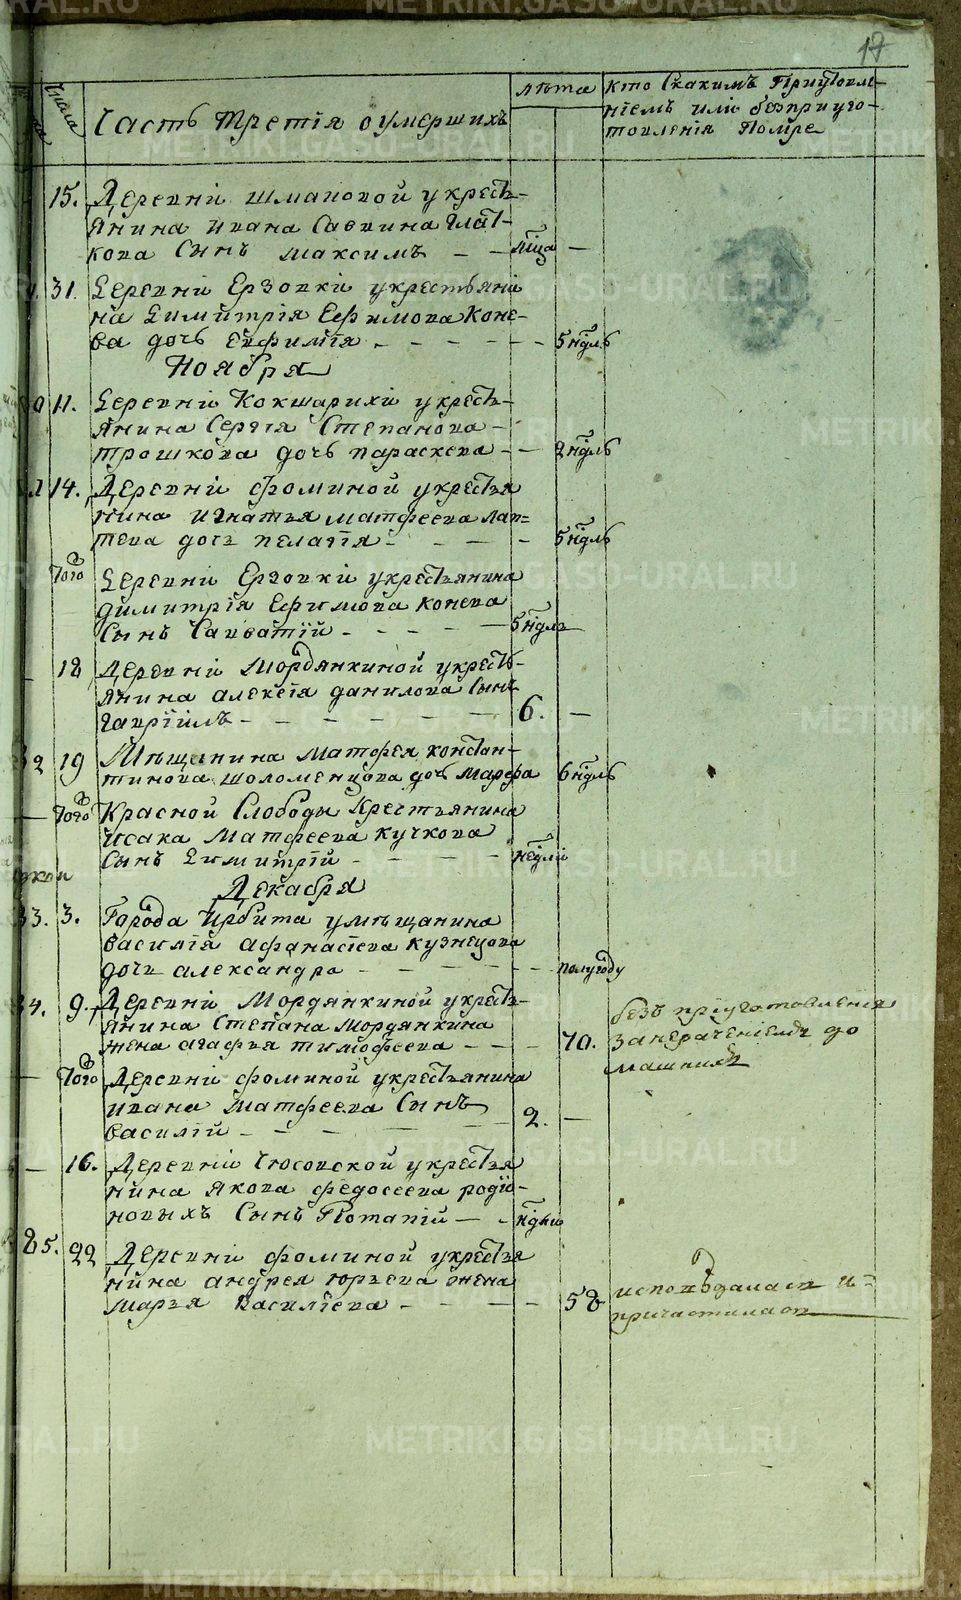 17
Числа
Часть третія о умершихъ
лѣта
кто Скакимъ Приутовле-
ніемъ или безприуго-
товленія Помре
15. Деревни Шмаковой укресть-
янина Ивана Саввина Глат-
кова Сынъ Максимъ - - мца -
31. Деревни Ерзовки укрестьяни
на Димитрія Ефимова Коне-
ва дочь Евфимія - - - - - 5 ндль
Ноября
11. Деревни Кокшарихи укресть-
янина Сергія Степанова
Трошкова дочь Параскева - - 2 ндль
14. Деревни Фоминой укрестья
нина Игнатья Матфеева Лап=
тева дочь Пелагія - - - - 5 ндль
Того Деревни Ерзовки укрестьянина
Димитрія Ефимова Конева
Сынъ Савватій - - - - - 5 ндль
18 Деревни Мордянкиной укресть-
янина Алексія Данилова Сынъ
Гавріилъ - - - - - - 6. -
19 Мѣщанина Матфея Констан-
тинова Шоломенцова дочь Марфа 6 ндль
Того Красной Слободы Крестьянина
Исака Матфеева Кучкова
Сынъ Димитрій - - - - - недли
Декабря
33. 3. Города Ирбита умѣщанина
Василія Афанасіева Кузнецова
дочь Александра - - - - - полугоду
34. 9. Деревни Мордянкиной укресть-
янина Степана Мордянкина
жена Агафья Тимофеева - - - 70.
безъ приуготовленія
занерачениемъ до
машнихъ
Того Деревни Фоминой укрестьянина
Ивана Матфеева Сынъ
Василій - - - - - - 2. -
16. Деревни Чюсовской укрестья
нина Якова Федосеева Родіо-
новыхъ Сынъ - - ндли
35. 22 Деревни Фоминой укрестья
нина Андрея Юрьева жена
Марья Василіева - - - - - 58
исповѣдалась и=
причастилась